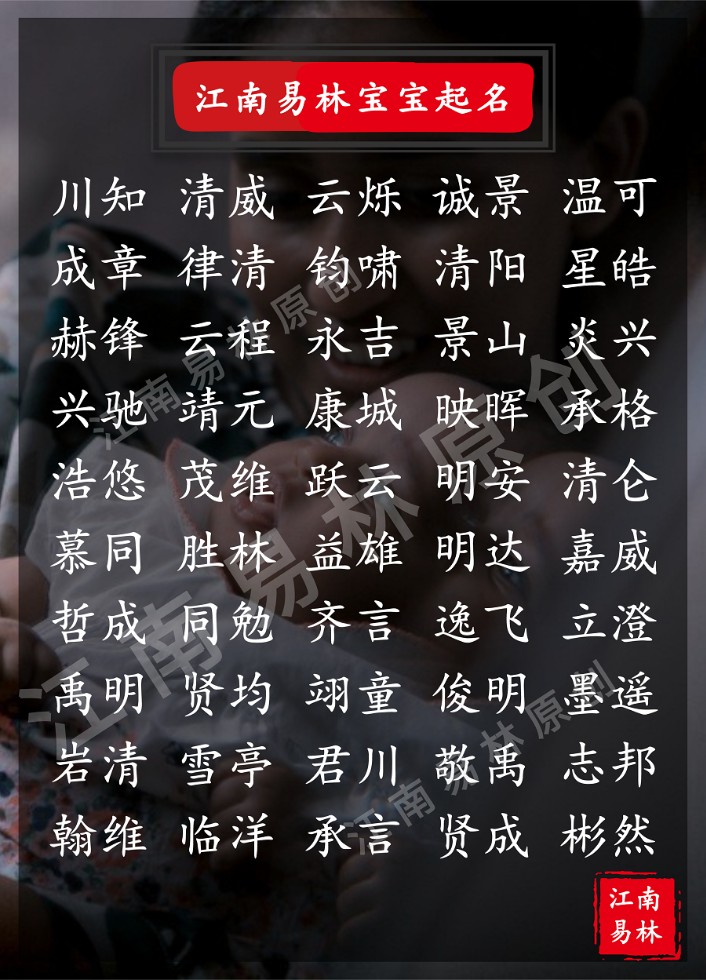 江南易林宝宝起名
川知 清威 云烁 诚景 温可
成章 律清 钧啸 清阳 星皓
赫锋 云程 永吉 景山 炎兴
兴驰 靖元 康城 映晖 承格
浩悠 茂维 跃云 明安 清仑
慕同 胜林 益雄 明达 嘉威
哲成 同勉 齐言 逸飞 立澄
禹明 贤均 翊童 俊明 墨遥
岩清 雪亭 君川 敬禹 志邦
翰维 临洋 承言 贤成 彬然
江南易林原创
江南易林原创
江南易林原创
江南
易林